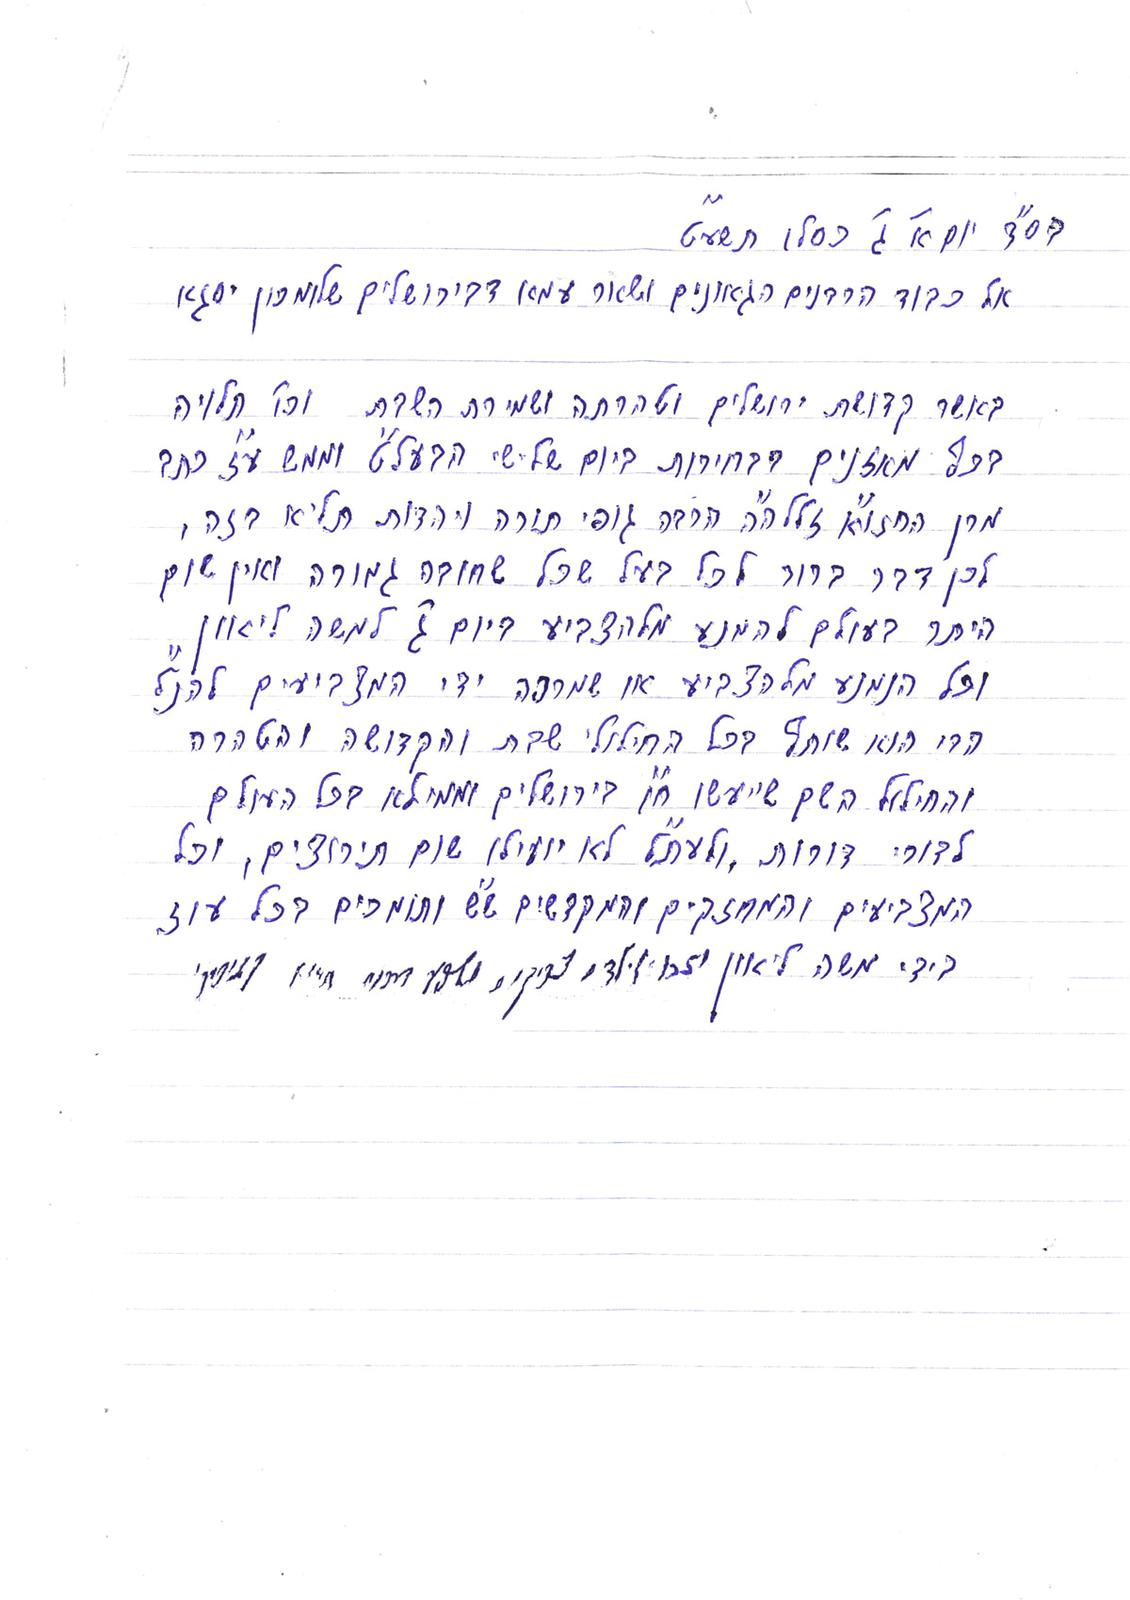 בס"ד יום א' ג' כסלו תשע"ט
אל כבוד הרבנים הגאונים ושאר עמא דבירושלים שלומכון יסגא
באשר קדושת ירושלים וטהרתה ושמירת השבת וכו' תלויה
בכף מאזנים דבחירות ביום שלישי הבעל"ט וממש ע"ז כתב
מרן החזו"א זללה"ה הרבה גופי תורה ויהדות תליא בזה,
לכן דבר ברור לכל בעל שכל שחובה גמורה ואין שום
היתר בעולם להמנע מלהצביע ביום ג' למשה ליאון
וכל הנמנע מלהצביע או שמרפה ידי המצביעים להנ"ל
הרי הוא שותף בכל החילולי שבת והקדושה והטהרה
והחילול השם שייעשו ח"ו בירושלים וממילא בכל העולם
לדורי דורות, ולעת"ל לא יועילו שום תירוצים, וכל
המצביעים והמחזקים והמקדשים ש"ש ותומכים בכל עוז
בידי משה ליאון יזכו